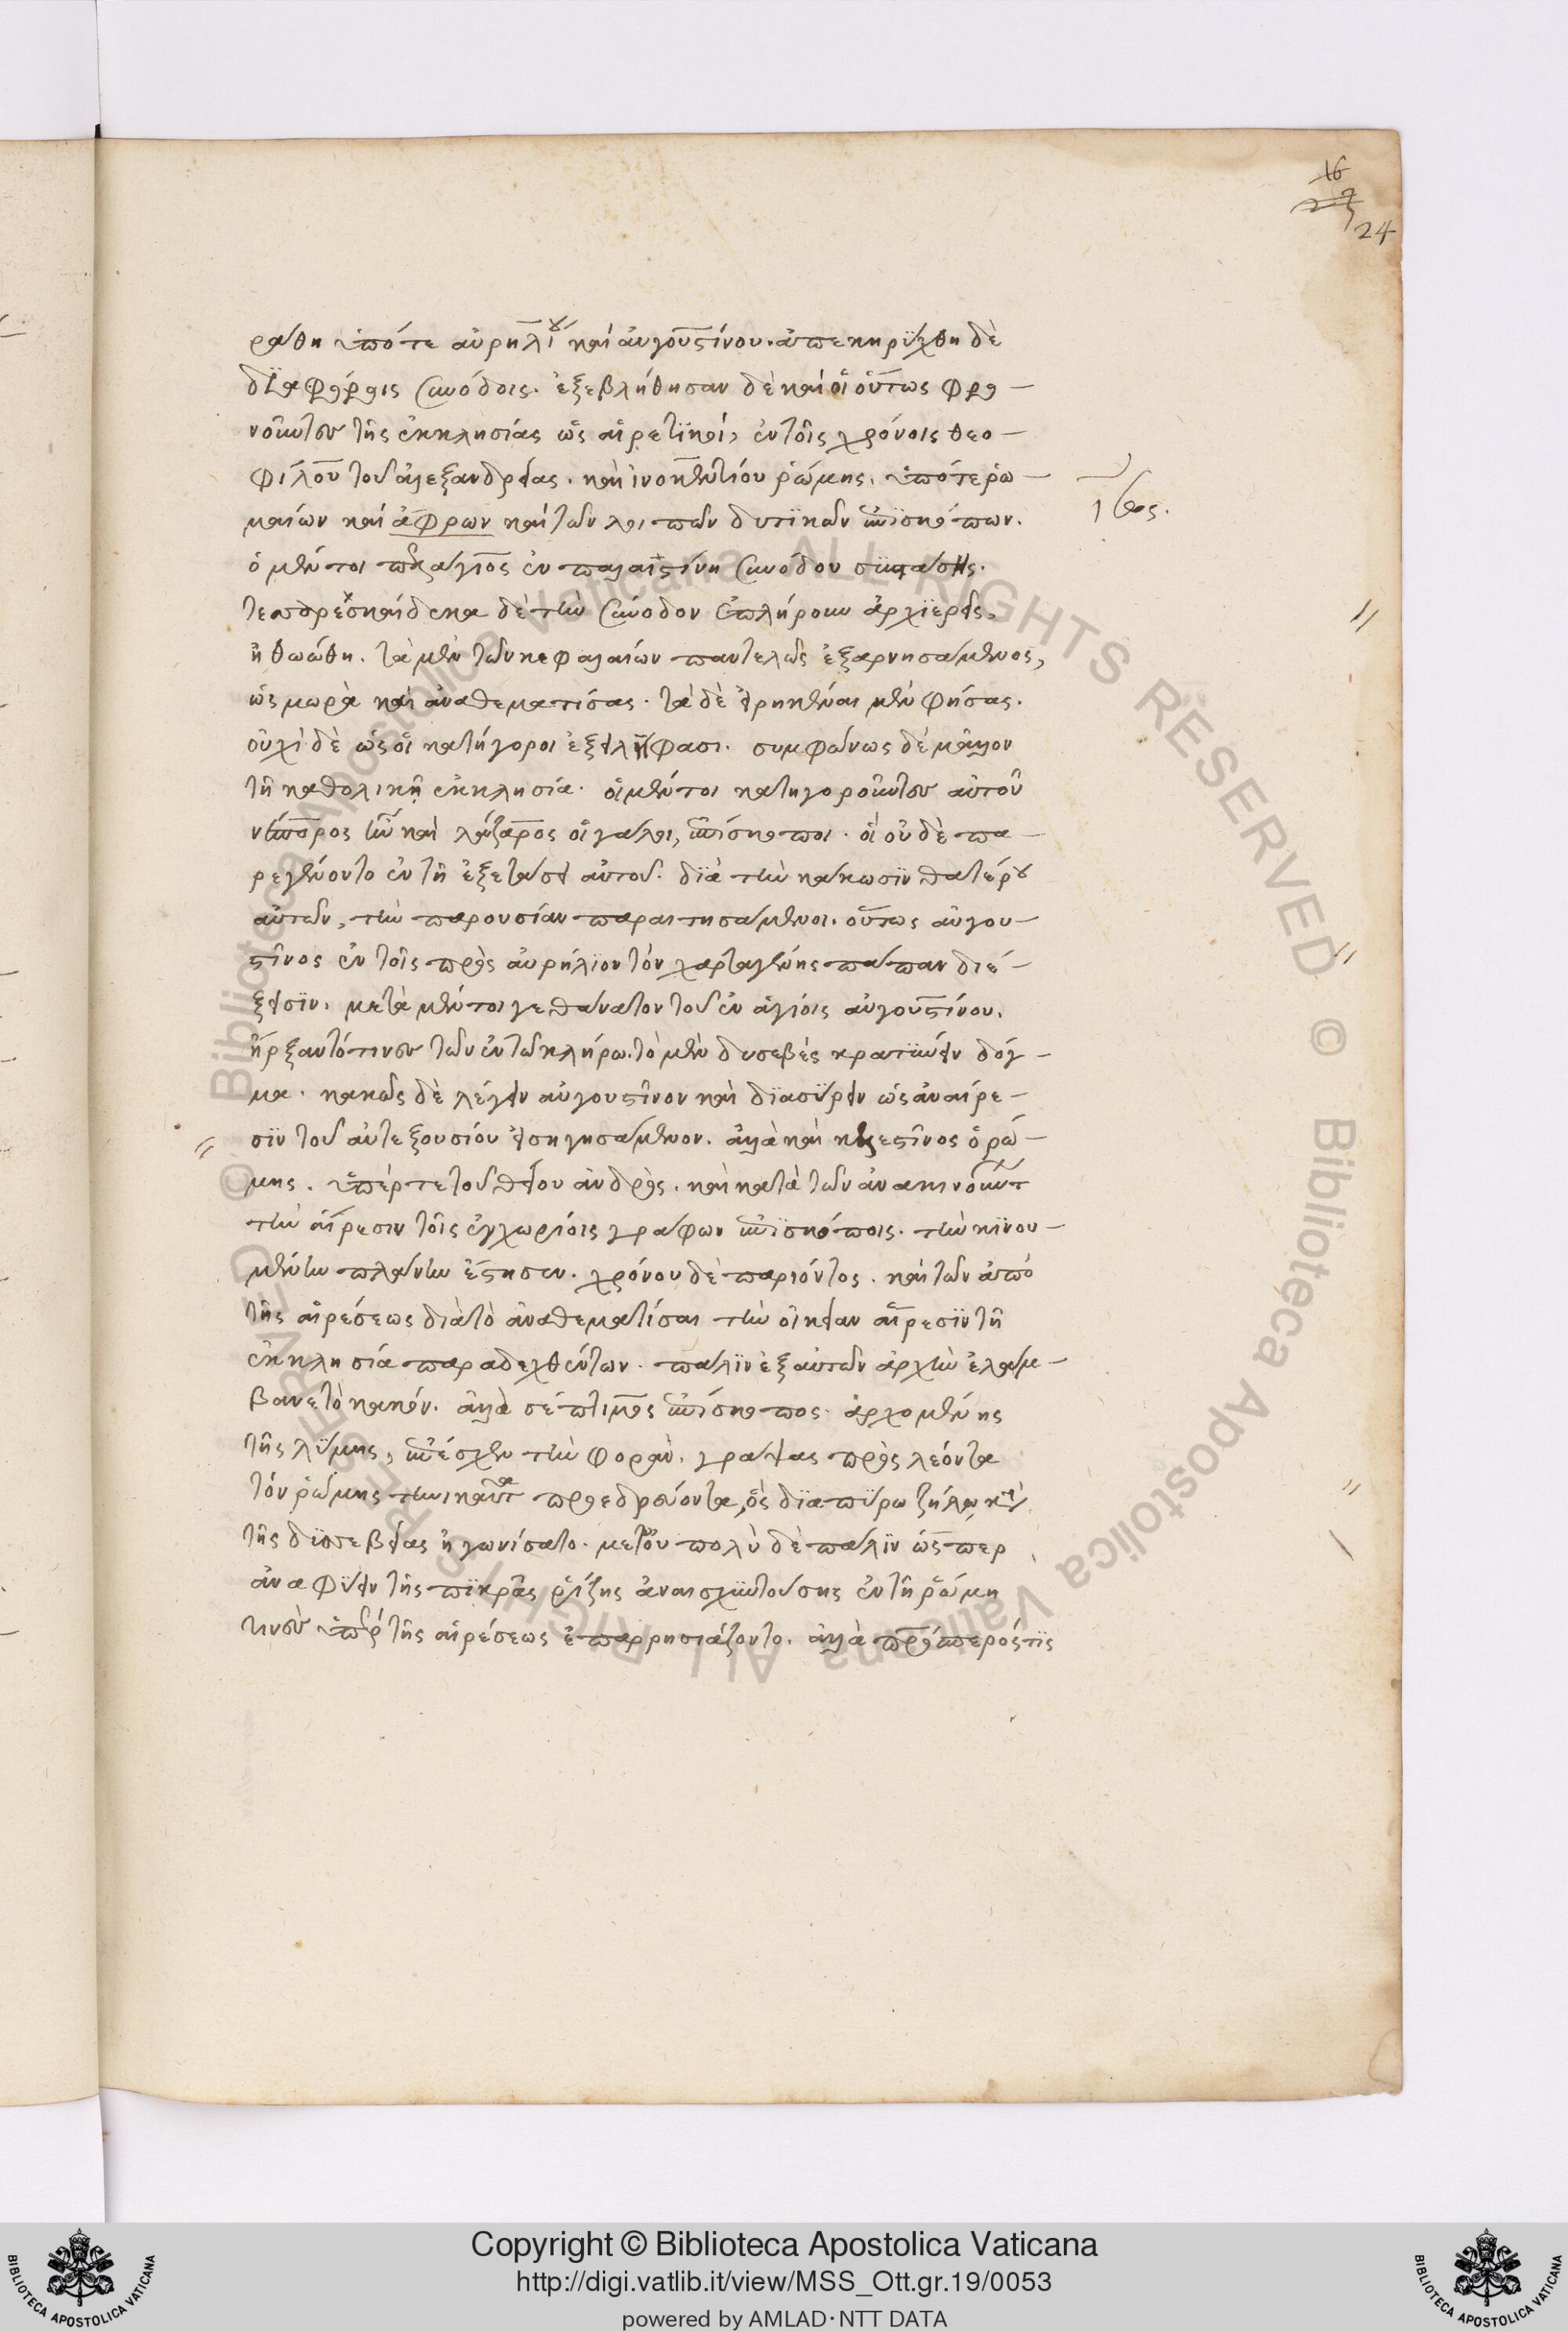 16
27
24
ράθη ὑπό τε αὐρηλίου καὶ αὐγουστίνου. ἀπεκηρύχθη δὲ
διαφόροις συνόδοις. ἐξεβλήθησαν δὲ καὶ οἱ οὕτως φρο-
νοῦντες τῆς ἐκκλησίας ὡς αἱρετικοὶ, ἐν τοῖς χρόνοις θεο-
φίλου τοῦ ἀλεξανδρείας. καὶ ἰνοκεντίου ῥώμης. ὑπό τε ῥω-
μαίων καὶ ἄφρων καὶ τῶν λοιπῶν δυτικῶν ἐπισκόπων.
ὁ μέντοι πελάγιος ἐν παλαιστίνη συνόδου συστάσης.
τεσσρεσκαίδεκα δὲ τὴν σύνοδον ἐπλήρουν ἀρχιερεῖς,
ἠθωώθη. τὰ μὲν τῶν κεφαλαίων παντελῶς ἐξαρνησάμενος,
ὡς μωρὰ καὶ ἀναθεματίσας. τὰ δὲ εἰρηκέναι μὲν φήσας.
οὐχὶ δὲ ὡς οἱ κατήγοροι ἐξειλήφασι. συμφώνως δὲ μᾶλλον
τῆ καθολικῇ ἐκκλησία. οἱ μέντοι κατηγοροῦντες αὐτοῦ
νέπορος ἦν καὶ λάζαρος οἱ γάλοι, ἐπίσκοποι. οἱ οὐδὲ πα-
ρεγένοντο ἐν τῆ ἐξετάσει αὐτοῦ. διὰ τὴν κάκωσιν θατέρου
αὐτῶν, τὴν παρουσίαν παραιτησάμενοι. οὕτως αὐγου-
στῖνος ἐν τοῖς πρὸς αὐρήλιον τὸν χαρταγένης πάπαν διέ-
ξεισιν. μετὰ μέντοι γε θάνατον τοῦ ἐν ἁγίοις αὐγουστίνου.
ἤρξαντό τινες τῶν ἐν τῶ κλήρω. τὸ μὲν δυσεβὲς κρατύνειν δόγ-
μα. κακῶς δὲ λέγειν αὐγουστῖνον καὶ διασύρειν ὡς ἀναίρε-
σιν τοῦ αὐτεξουσίου εἰσηγησάμενον. ἀλλὰ καὶ κελεστῖνος ὁ ῥώ-
μης. ὑπέρ τε τοῦ θείου ἀνδρὸς. καὶ κατὰ τῶν ἀνακινούντων
τὴν αἵρεσιν τοῖς ἐγχωρίοις γράφων ἐπισκόποις. τὴν κινου-
μένην πλάνην ἔστησεν. χρόνου δὲ παριόντος. καὶ τῶν ἀπὸ
τῆς αἱρέσεως διὰ τὸ ἀναθεματίσαι τὴν οἰκείαν αἵρεσιν τῆ
ἐκκλησία παραδεχθέντων. πάλιν ἐξ αὐτῶν ἀρχὴν ἐλάμ-
βανε τὸ κακόν. ἀλλὰ σέπτιμος ἐπίσκοπος. ἀρχομένης
τῆς λύμης, ἐπέσχεν τὴν φοράν. γράψας πρὸς λέοντα
τὸν ῥώμης τηνικαῦτα προεδρεύοντα, ὃς διαπύρω ζήλω κατὰ
τῆς δυσσεβείας ἠγωνίσατο. μετ οὐ πολὺ δὲ πάλιν ὥσπερ
ἀναφύειν τῆς πικρᾶς ῥίζης ἀναισχυντούσης ἐν τῆ ῥώμη
τινὲς ὑπὲρ τῆς αἱρέσεως ἐπαρρησιάζοντο. ἀλλὰ πρόσπερός τις
Copyright © Biblioteca Apostolica Vaticana
http://digi.vatlib.it/view/MSS_Ott.gr.19/0053
powered by AMLAD·NTT DATA